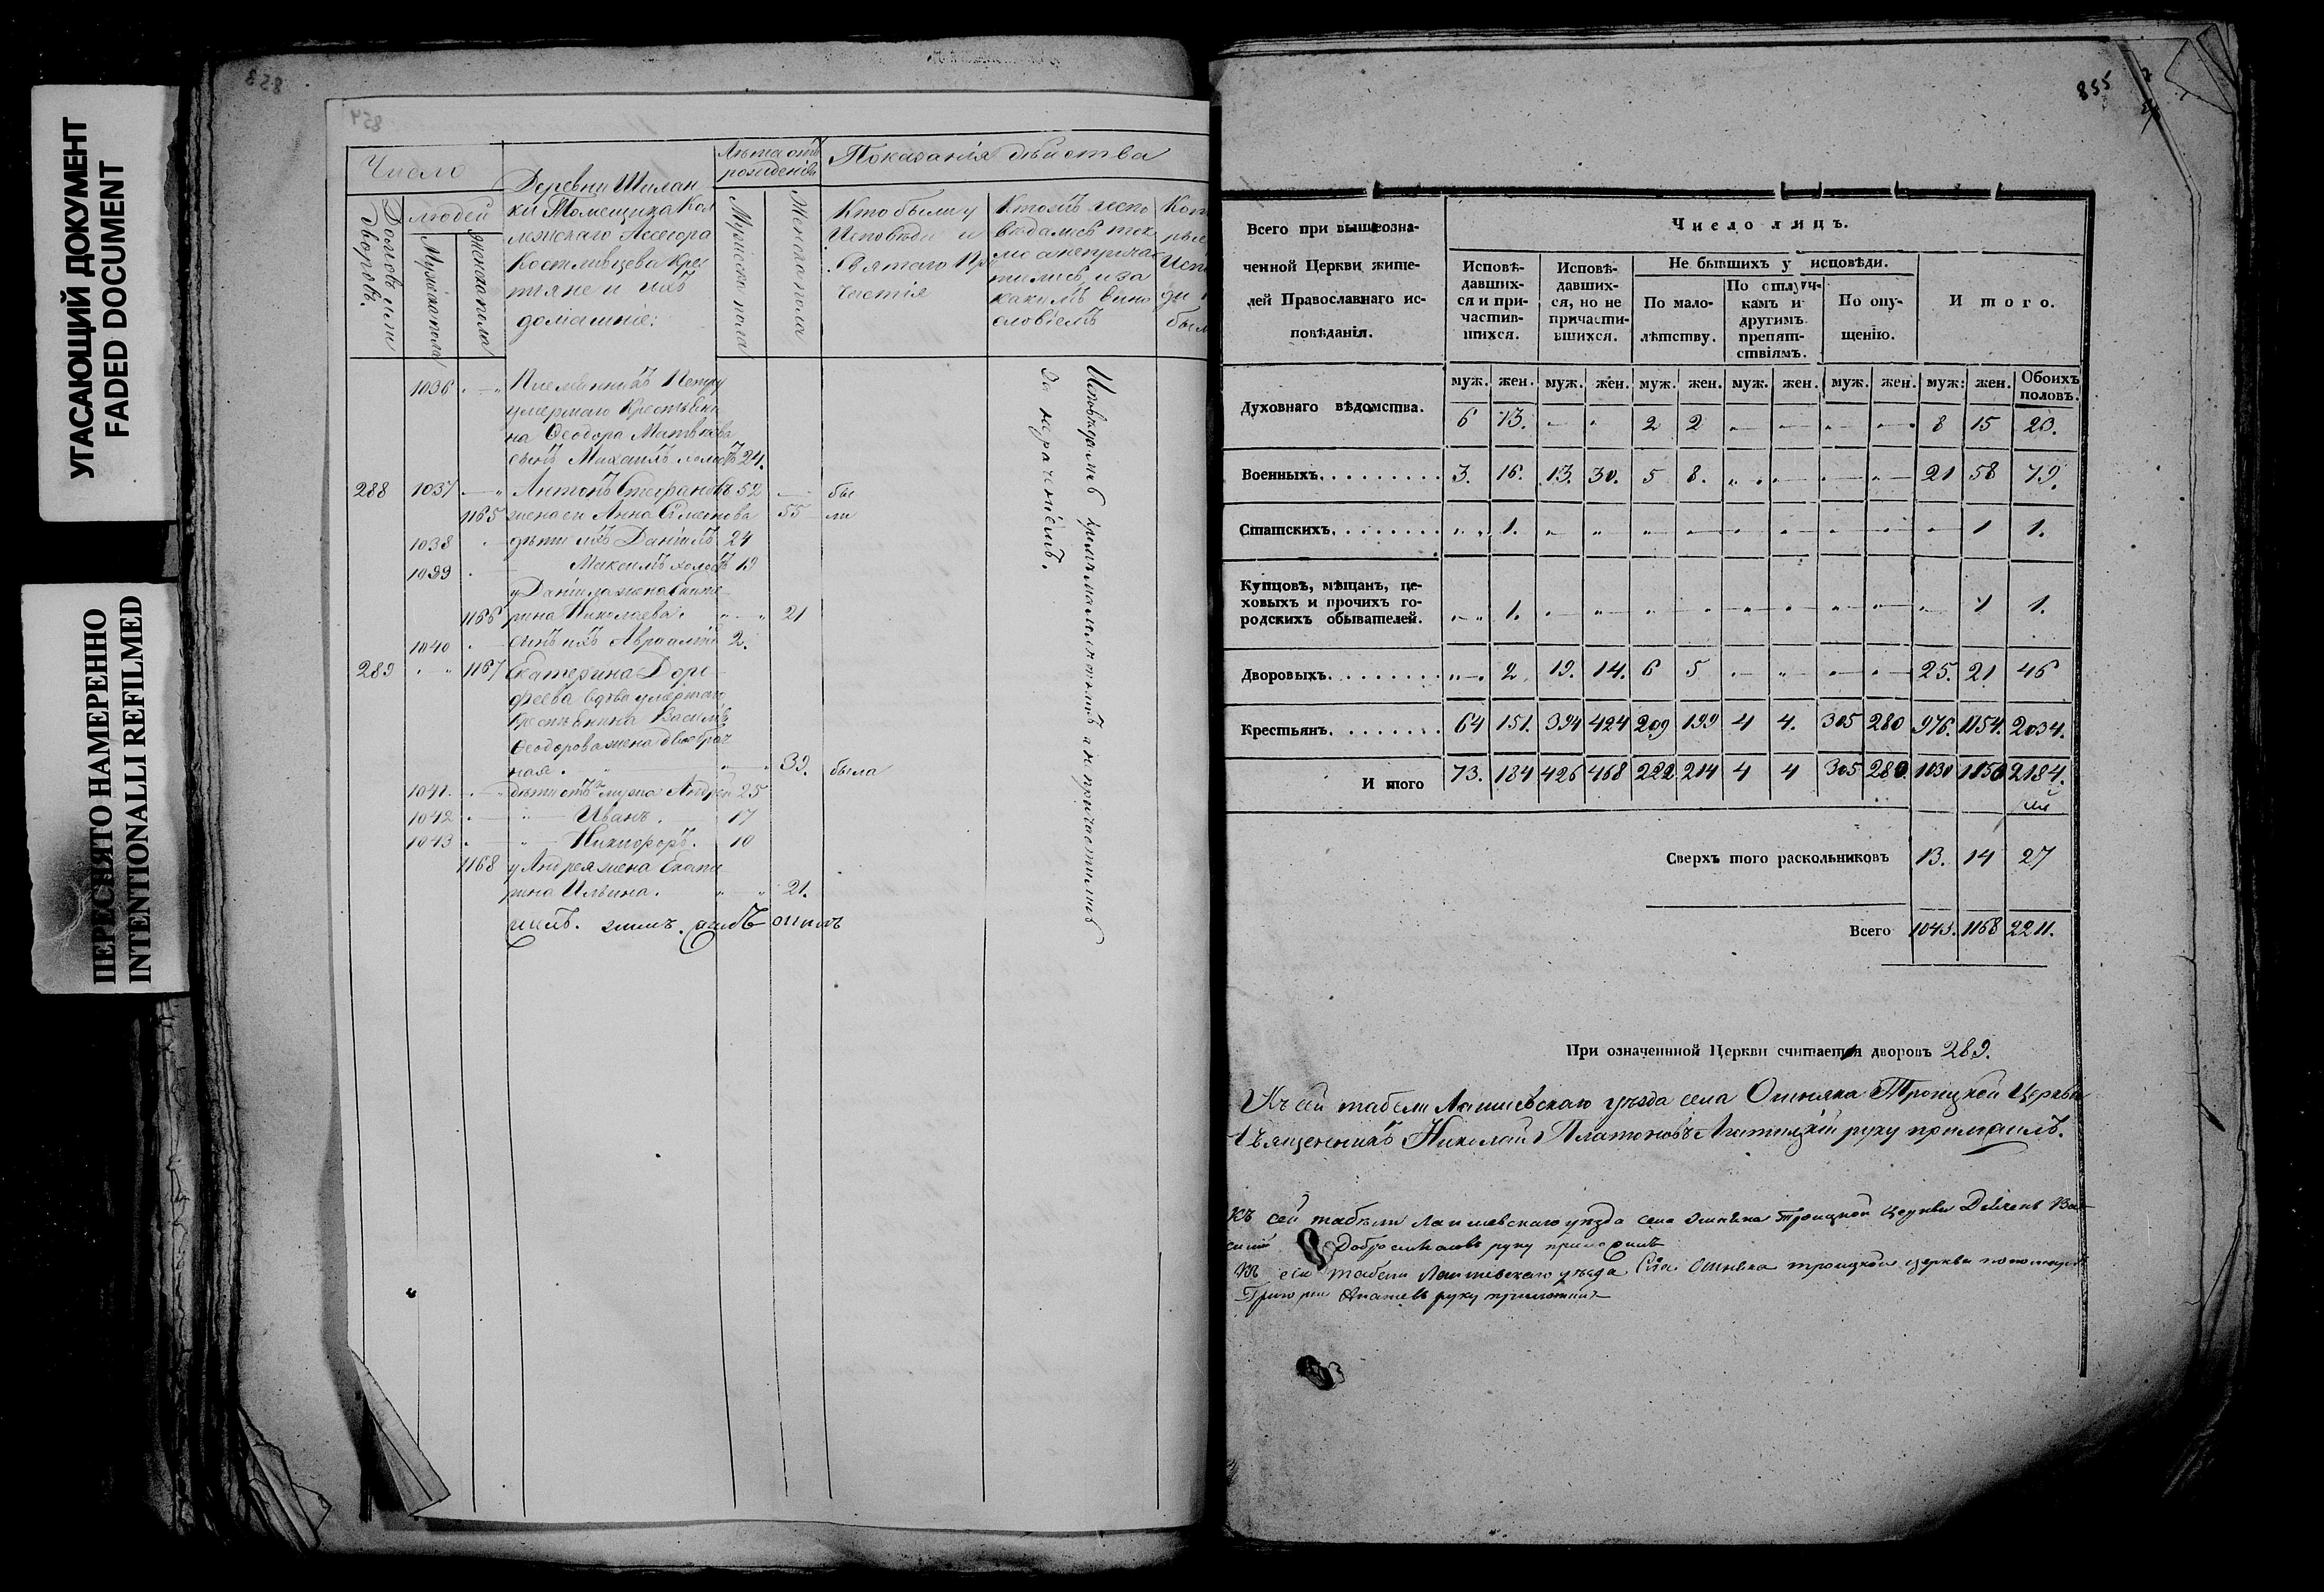 УГАСАЮЩИЙ ДОКУМЕНТ
FADED DOCUMENT
ПЕРЕСНЯТО НАМЕРЕННО
INTENTIONALLI REFILMED
828
Число
Домовъ или дворовъ.
людей
Мужеска пола
Женска пола
Деревни Шилан
ки Помещика Кол
лежскаго Асесора
Костливцева кре
тяне и ихъ
домашние:
Лѣта отъ
рождения
Мужеска пола
Женска пола
Показанія дѣйства
Кто были у
Исповѣди и
Святаго При
частія
Кто исповѣдались токмо а непричастились и за какимъ винословіемъ
1036 Племянникъ Петру
умершаго Крестьяни
на Ѳеодора Матвѣева
сынъ Михаилъ холостъ 24.
288 1037 Антонъ Стефановъ 52 бы
1165 жена его Анна Симеонова 55 ли
1038 дѣти ихъ Даніилъ 24
1039 Максимъ холостъ 19
у Даніила жена Екате
1166 рина Николаева. 21
1040 сынъ ихъ Авраамій 2.
289 1167 Екатерина Доро
феева вдова умершаго
Крестьянина Василья
Ѳеодорова жена двоебрач
ная. 39. была
1041. дѣти отъ 1го мужа Андрей 25
1042 Иванъ. 17
1043 Никифоръ. 10
1168 у Андрея жена Екате
рина Ильина. 21.
Исповѣдались съ малолѣтними а не причастились
За нераченіемъ.
855
Всего при вышеозна-
ченной Церкви жите-
лей Православнаго ис-
повѣданія.
Число лицъ.
Исповѣ-
давших-
ся и при-
частив-
шихся.
Исповѣ-
давших-
ся, но не
причасти-
вшихся.
Не бывшихъ у исповѣди.
По мало-
лѣтству.
По отлуч-
камъ и
другимъ
препят-
ствіямъ.
По опу-
щенію.
Итого.
муж. жен. муж. жен. муж. жен. муж. жен. муж. жен. муж. жен. Обоихъ половъ.
Духовнаго вѣдомства. 6 13. 2 2 8 15 23.
Военныхъ. 3. 16. 13. 30. 5 8. 21 58 79.
Статскихъ. 1. 1 1.
Купцовъ, мѣщанъ, це-
ховыхъ и прочихъ го-
родскихъ обывателей. 1. 1 1.
Дворовыхъ. 2 19. 14. 6 5 25. 21 46
Крестьянъ. 64 151. 394 424 209 199 4 4. 305 280 976. 1154. 2034.
И того 73. 184 426 468 222 214 4 4 305 280. 1030 1150 2184.
Сверхъ того раскольниковъ 13. 14 27
Всего 1043. 1168 2211.
При означенной Церкви считается дворовъ 289.
Къ сей табели Лаишевскаго уѣзда села Ошняка Троицкой Церкви
Священникъ Николай Платоновъ руку приложилъ.
Къ сей табели Лаишевскаго уѣзда села Ошняка Троицкой Церкви Діаконъ Ва-
силій Добросмысловъ руку приложилъ
Къ сей табели Лаишевскаго уѣзда села Ошняка троицкой церкви пономарь
Григорій руку приложилъ